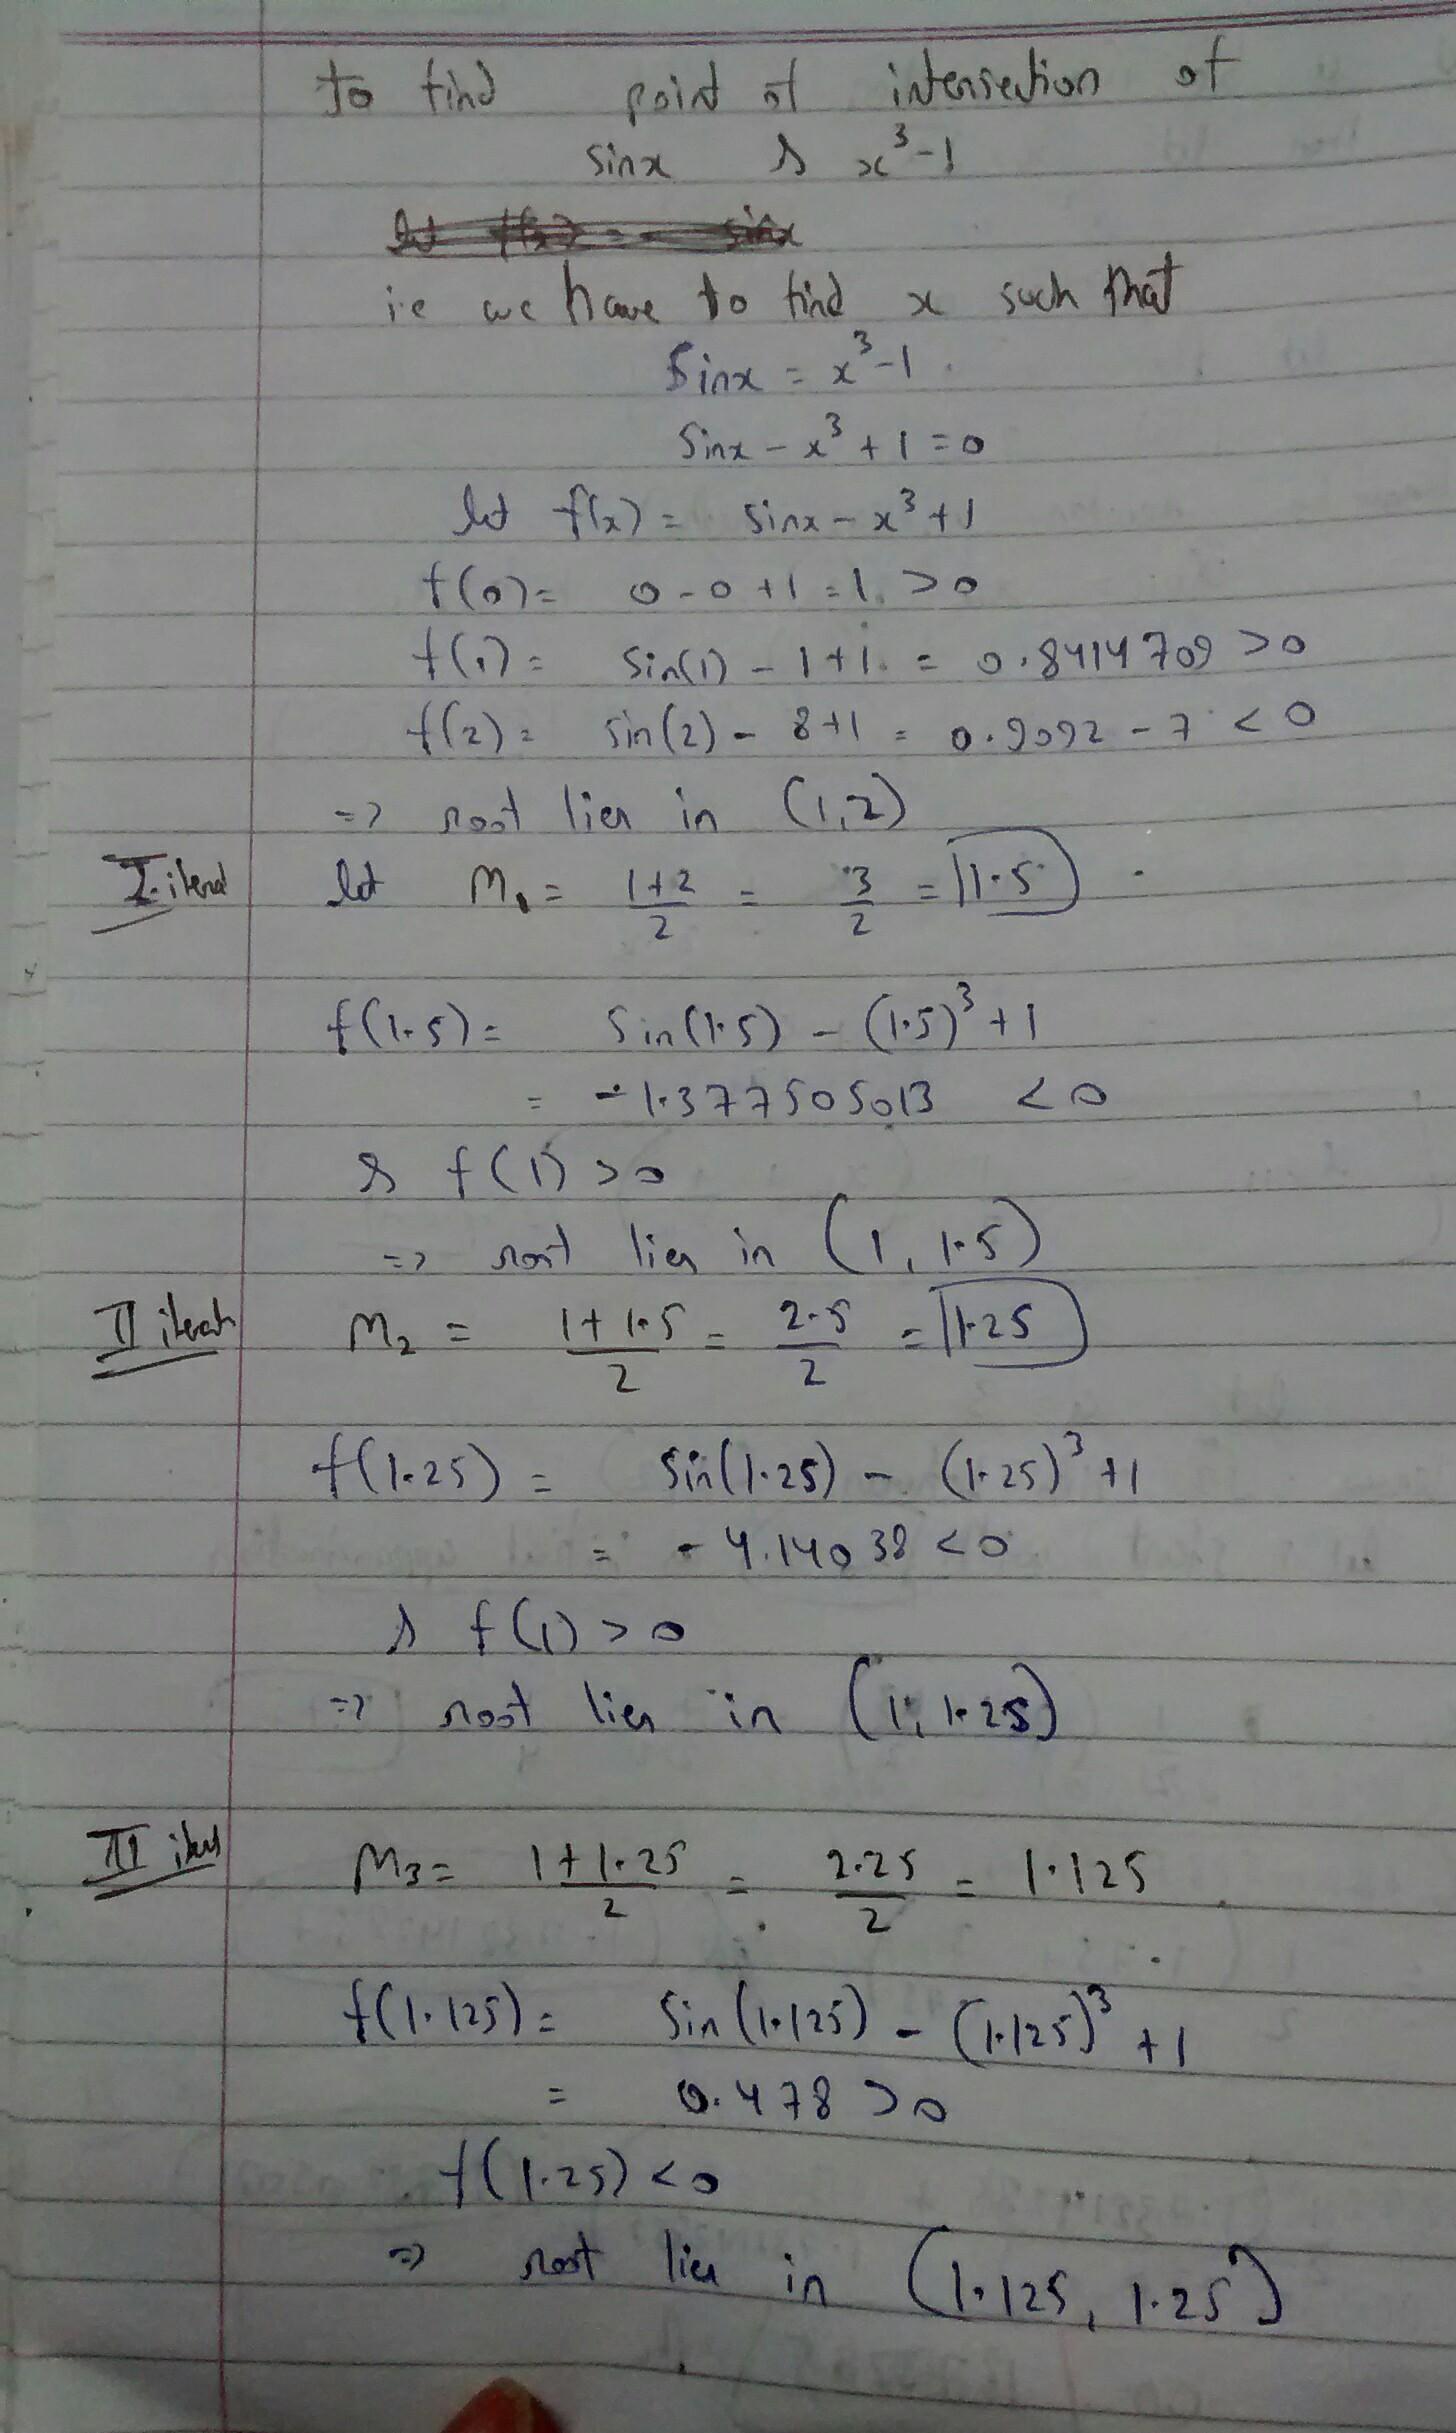 to find point of intersection of
sinx & x³-1
i.e we have to find x such that
Sinx = x³-1.
Sinx - x³ + 1 = 0
let f(x) = sinx - x³ + 1
f(0) = 0 - 0 + 1 = 1 > 0
f(1) = Sin(1) - 1 + 1 = 0.8414709 > 0
f(2) = sin(2) - 8 + 1 = 0.9092 - 7 < 0
=> root lies in (1, 2)
I iterat let M₁ = 1+2/2 = 3/2 = 1.5
f(1.5) = Sin(1.5) - (1.5)³ + 1
= -1.377505013 < 0
& f(1) > 0
=> root lies in (1, 1.5)
II iterat M₂ = 1+1.5/2 = 2.5/2 = 1.25
f(1.25) = Sin(1.25) - (1.25)³ + 1
= -4.14038 < 0
& f(1) > 0
=> root lies in (1, 1.25)
III iterat M₃ = 1+1.25/2 = 2.25/2 = 1.125
f(1.125) = Sin(1.125) - (1.125)³ + 1
= 0.478 > 0
f(1.25) < 0
=> root lies in (1.125, 1.25)